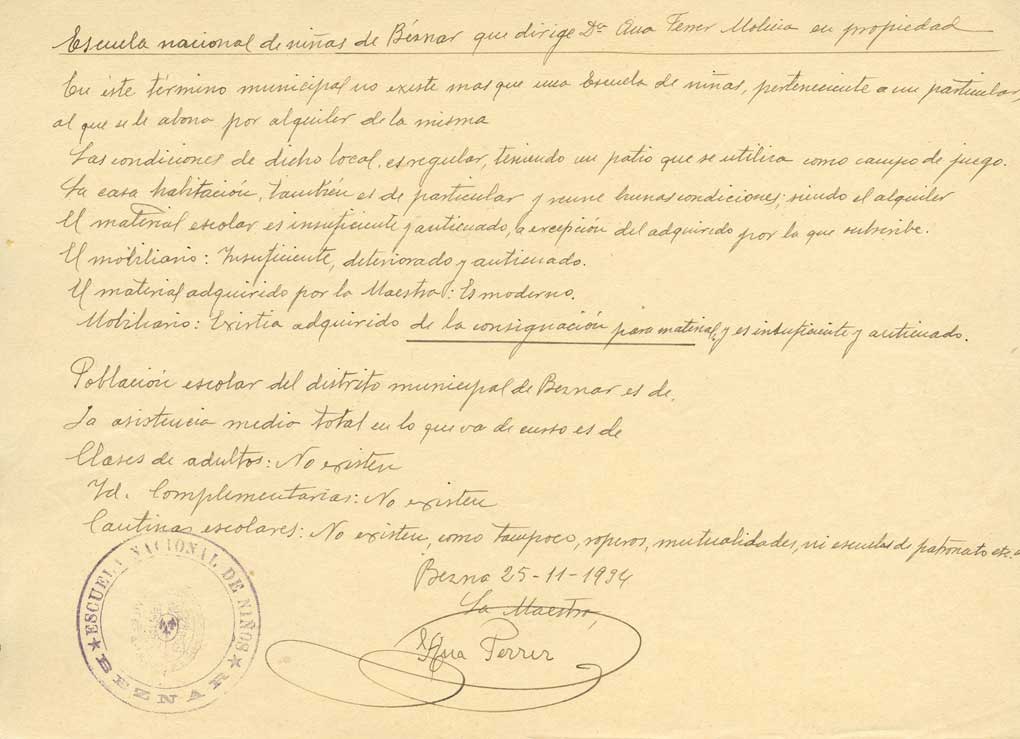 Escuela nacional de niñas de Béznar que dirige Dª Ana Ferrer Molina en propiedad
En éste término municipal no existe mas que una Escuela de niñas, perteneciente a un particular,
al que se le abona por alquiler de la misma
Las condiciones de dicho local, es regular, teniendo un patio que se utiliza como campo de juego.
La casa habitación, también es de particular y reune buenas condiciones; siendo el alquiler
El material escolar es insuficiente y anticuado, a excepción del adquirido por la que subscribe.
El mobiliario: Insuficiente, deteriorado y anticuado.
El material adquirido por la Maestra: Es moderno.
Mobiliario: Existia adquirido de la consignación para material, y es insuficiente y anticuado.
Población escolar del distrito municipal de Beznar es de.
La asistencia media total en lo que va de curso es de
Clases de adultos: No existen
Id. Complementarias: No existen
Cantinas escolares: No existen, como tampoco, roperos, mutualidades, ni escuelas de patronato etc.
Bezna 25-11-1934
La Maestra,
Ana Ferrer
ESCUELA NACIONAL DE NIÑOS
BEZNAR